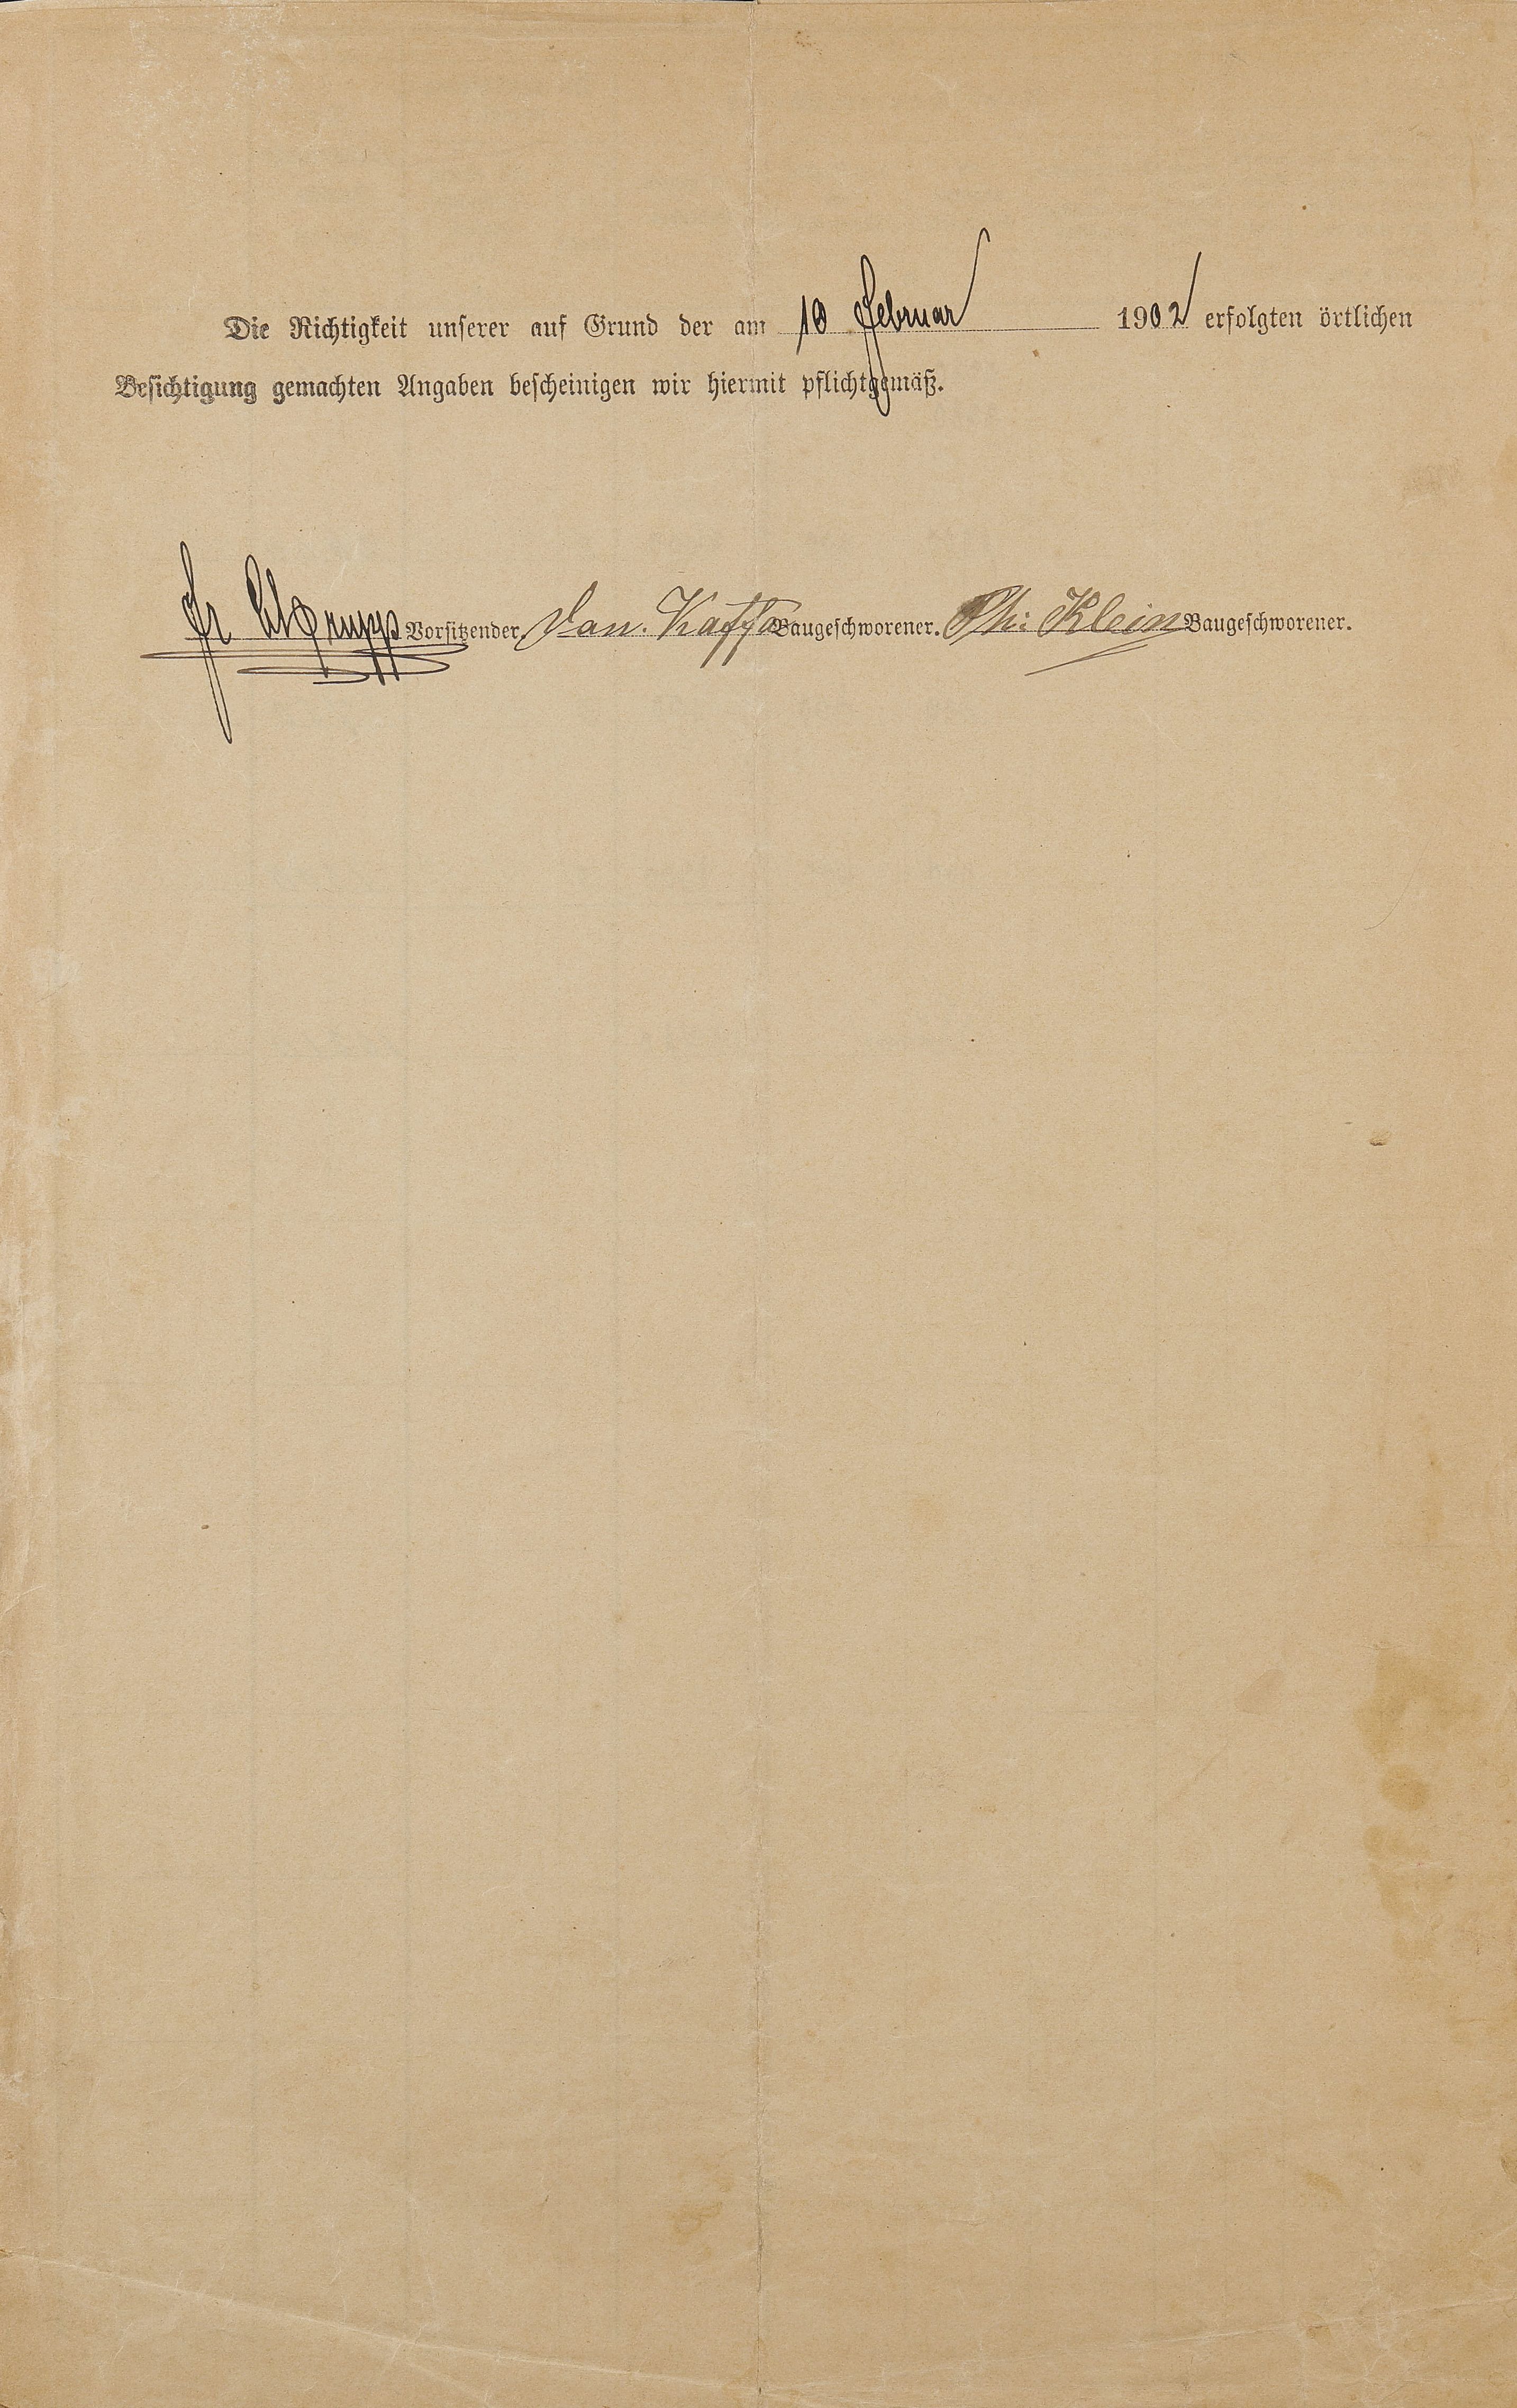 Die Richtigkeit unserer auf Grund der am 10 Februar 1902 erfolgten örtlichen
Besichtigung gemachten Angaben bescheinigen wir hiermit pflichtgemäß.
Fr Vorsitzender. Dan. Baugeschworener. Ph: Klein Baugeschworener.